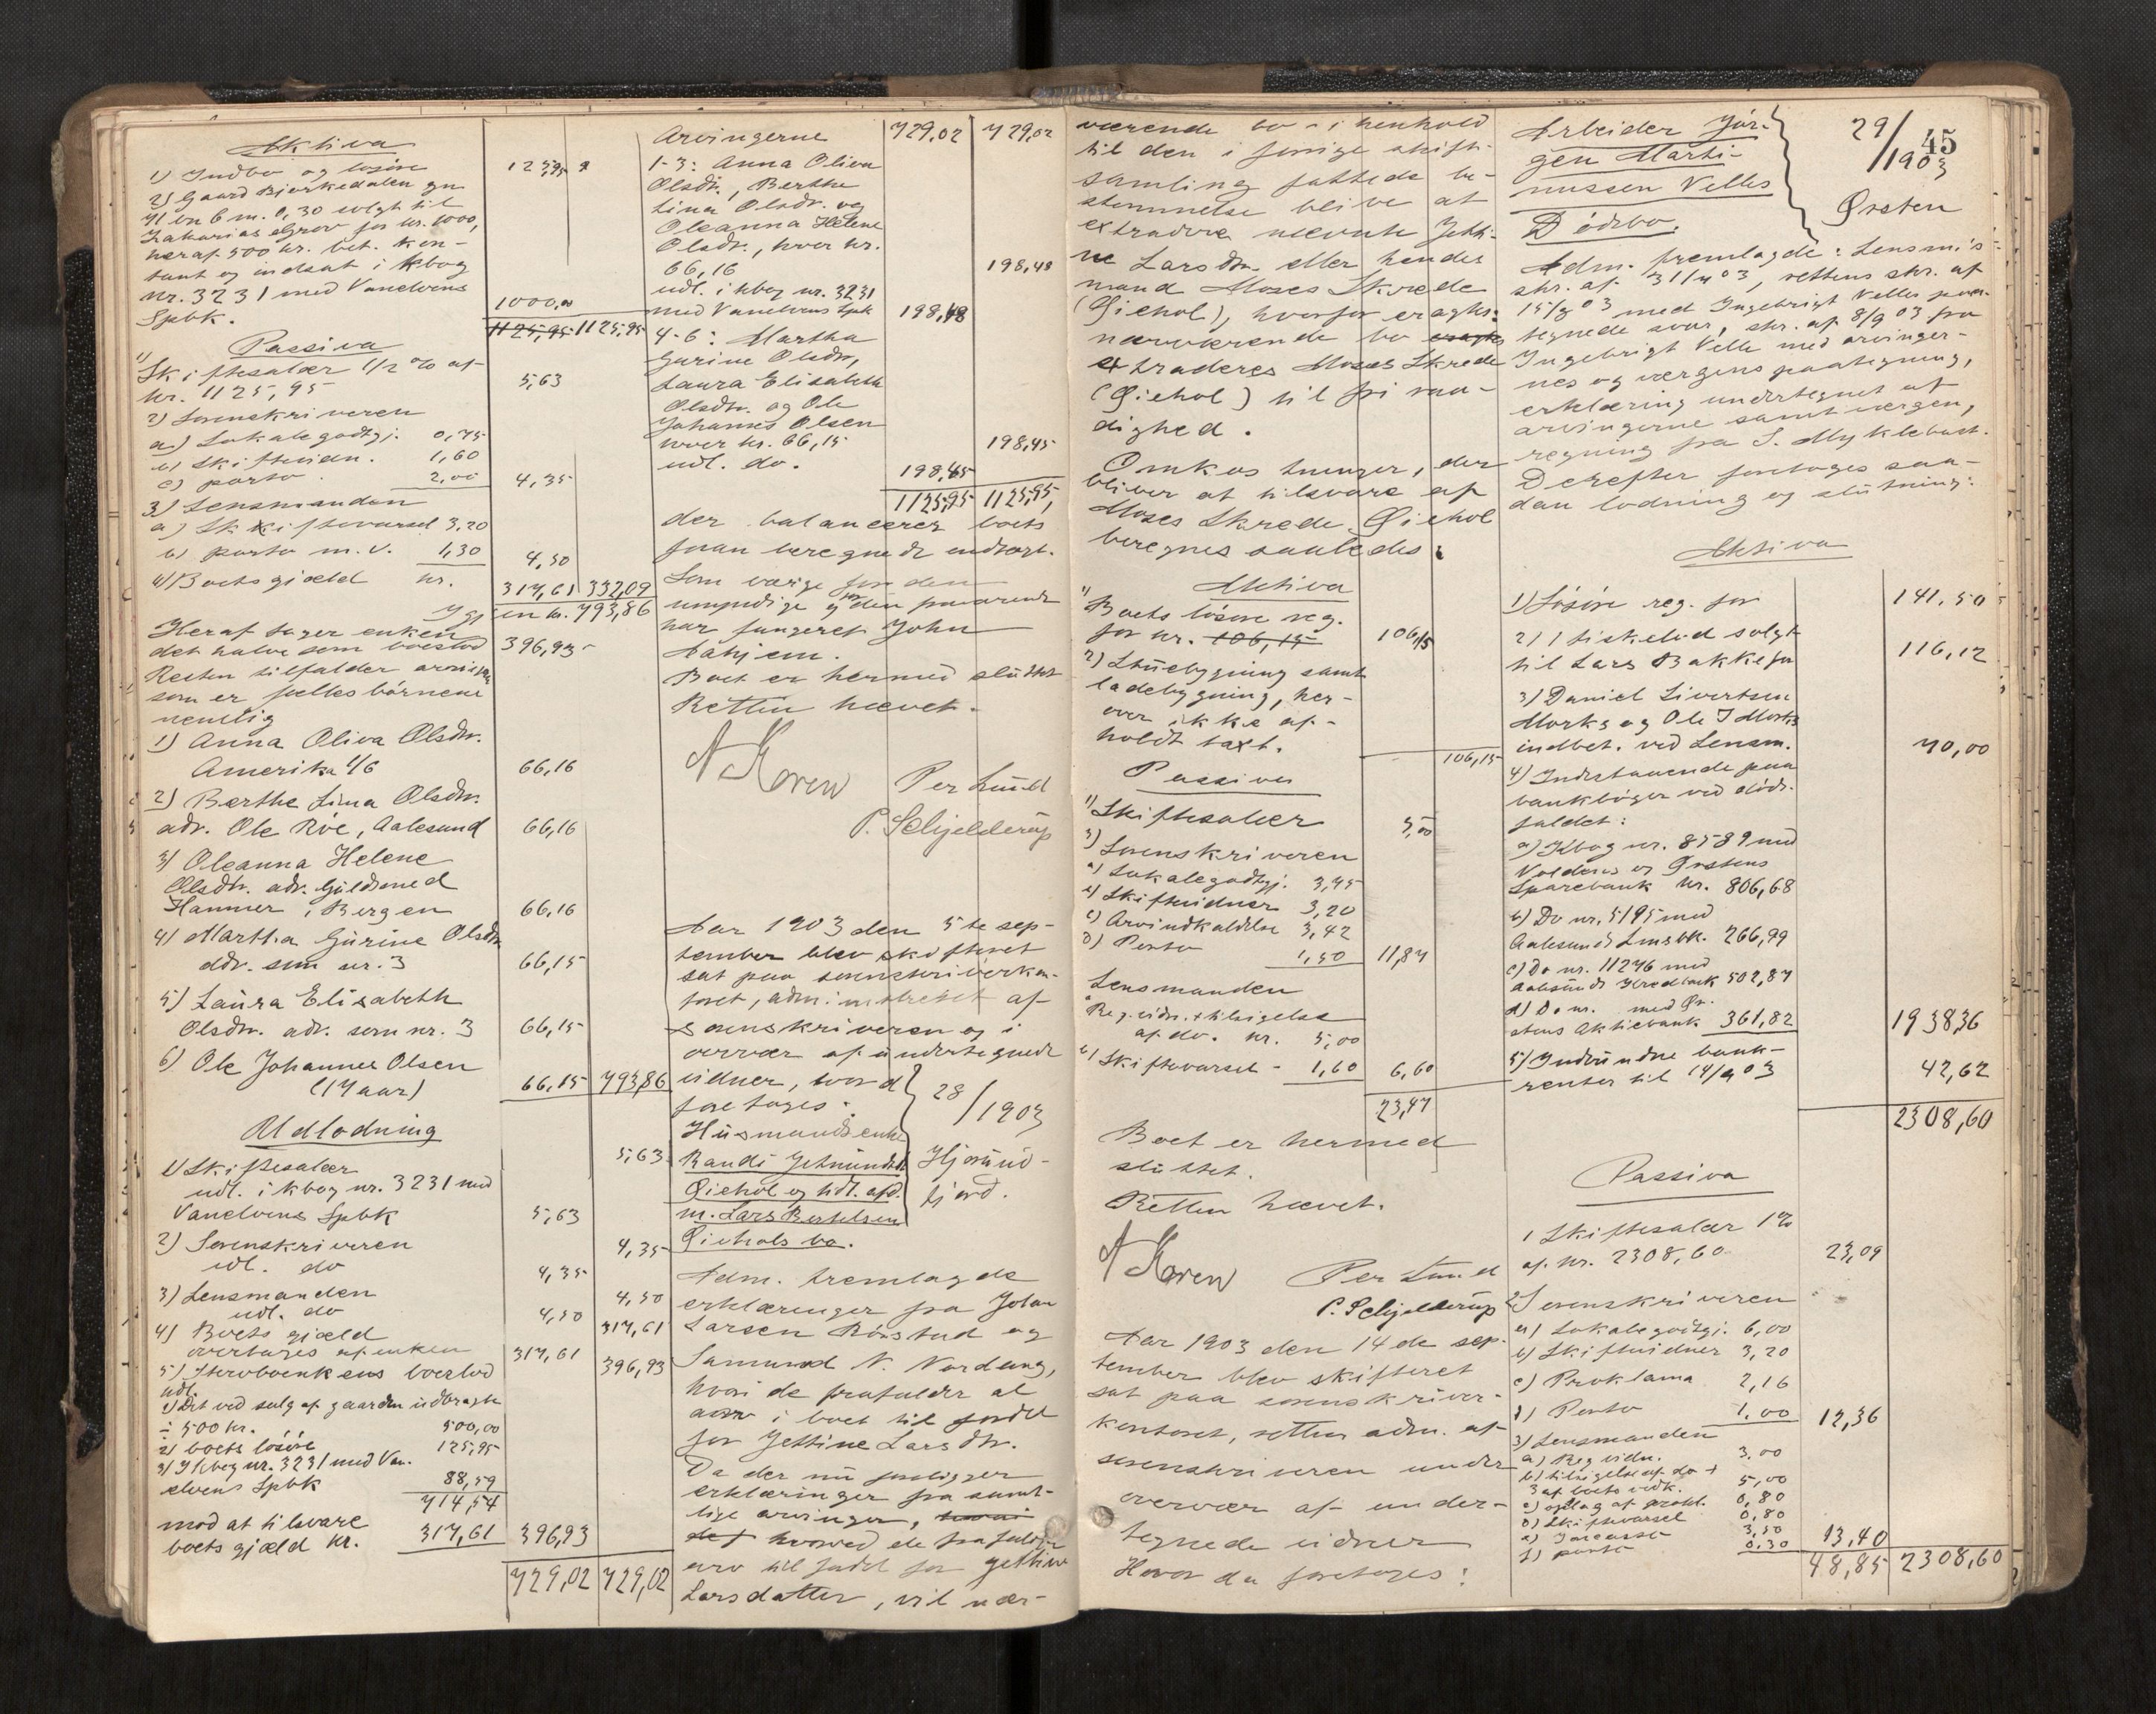 Aktiva
1) Indbo og løsøre 125,95
2) Gaard Bjørkedalen gn
71 bn 6 m. 0,30 solgt til
Zakarias for kr. 1000,
heraf 500 kr. bet. kon-
tant og indsat i kbog
nr. 3231 med Vanelvens
Spbk. 1000,00
1125,95 1125,95
Passiva
1) Skiftesalær 1/2 % af
kr. 1125,95 5,63
2) Sorenskriveren
a) Lokalegodtgj. 0,75
b) Skiftevidn. 1,60
c) porto 2,00 4,35
3) Lensmanden
a) Skiftevarsel 3,20
b) porto m.v. 1,30 4,50
4) Boets gjæld kr. 317,61 332,09
Igjen kr. 793,86
Heraf tager enken
det halve som boeslod 396,93
Resten tilfalder arvingerne
som er fælles børnene
nemlig
1) Anna Oliva Olsdtr.
Amerika 1/6 66,16
2) Berthe Lina Olsdtr.
adr. Ole Röe, Aalesund 66,16
3) Oleanna Helene
Olsdtr. adr. Guldsmed
Hammer, Bergen 66,16
4) Martha Gurine Olsdtr
adr. som nr. 3 66,15
5) Laura Elisabeth
Olsdtr. adr. som nr. 3 66,15
6) Ole Johannes Olsen
(17 aar) 66,15 793,86
Udlodning
1) Skiftesalær 5,63
udl. i kbog nr. 3231 med
Vanelvens Spbk 5,63
2) Sorenskriveren 4,35
udl. do 4,35
3) Lensmanden 4,50
udl. do 4,50
4) Boets gjæld 317,61
overtages af enken 317,61
5) Sterboenkens boeslod 396,93
udl.
1) Det ved salg af gaarden udbragte
÷ 500 kr. 500,00
2) boets løsøre 125,95
3) I kbog nr. 3231 med Van-
elvens Spbk 88,59
714,54
mod at tilsvare
boets gjæld kr. 317,61 396,93
729,02 729,02
Arvingerne 729,02 729,02
1-3: Anna Oliva
Olsdtr., Berthe
Lina Olsdtr. og
Oleanna Helene
Olsdtr., hver kr.
66,16 198,48
udl. i kbog nr. 3231
med Vanelvens Spbk 198,48
4-6: Martha
Gurine Olsdtr,
Laura Elisabeth
Olsdtr. og Ole
Johannes Olsen
hver kr. 66,15 198,45
udl. do. 198,45
1125,95 1125,95,
der balancerer boets
foran beregnede indtægt.
Som værge for den
umyndige og for den fraværende
har fungeret John
Aahjem.
Boet er hermed sluttet
Retten hævet.
N Koren Per Lund
P. Schjelderup
Aar 1903 den 5te sep-
tember blev skifteret
sat paa sorenskriverkon-
toret, administreret af
sorenskriveren og i
overvær af undertegnede
vidner, hvor da
foretoges: 28/1903
Husmandsenke
Randi Jetmundsdtr Hjørund-
Öiehol og tidl. afd. fjord.
m. Lars Bertelsen
Öiehols bo.
Adm. fremlagde
erklæringer fra Johan
Larsen Rörstad og
Samund N. Nordang,
hvori de frafalder al
arv i boet til fordel
for Jettine Larsdtr.
Da der nu foreligger
erklæringer fra samt-
lige arvinger,
hvorved de frafalder
arv til fordel for Jettine
Larsdatter, vil nær-
værende bo - i henhold
til den i forrige skifte-
samling fattede be-
stemmelse blive at
extradere nævnte Jetti-
ne Larsdtr. eller hendes
mand Moses Skrede
(Öiehol), hvorfor eragtes:
nærværende bo
extraderes Moses Skrede
(Öiehol) til fri raa-
dighed.
Omkostninger, der
bliver at tilsvare af
Moses Skrede Öiehol
beregnes saaledes:
Aktiva
1) Boets løsøre reg.
for kr. 106,15 106,15
2) Stuebygning samt
ladebygning, her-
over ikke af-
holdt taxt.
106,15
Passiva
1) Skiftesalær 5,00
3) Sorenskriveren
a) Lokalegodtgj. 3,75
b) Skiftevidner 3,20
c) Arvindkaldelse 3,42
d) Porto 1,50 11,87
Lensmanden
a) Reg.vidn. + tilsigelse
af do. kr. 5,00
b) Skiftevarsel - 1,60 6,60
23,47
Boet er hermed
sluttet.
Retten hævet.
N Koren Per Lund
P. Schjelderup
Aar 1903 den 14de sep-
tember blev skifteret
sat paa sorenskriver-
kontoret, retten adm. af
sorenskriveren under
overvær af under-
tegnede vidner
Hvor da foretoges:
Arbeider Jör- 29/1903 45
gen Marti-
nussen Velles Örsten
Dødsbo.
Adm. fremlagde: Lensm.'s
skr. af 31/7 03, rettens skr. af
15/8 03 med Ingebrigt Velles paa-
tegnede svar, skr. af 8/9 03 fra
Ingebrigt Velle med arvinger-
nes og værgens paategning,
erklæring undertegnet af
arvingerne samt værgen,
regning fra S. Myklebust.
Derefter foretoges saa-
dan lodning og slutning:
Aktiva
1) Løsøre reg. for 141,50
2) 1 fiskelod solgt
til Lars Bakke for 116,12
3) Daniel Sivertsen
Mork og Ole J Mork
indbet. ved Lensm. 70,00
4) Indestaaende paa
bankbøger ved døds-
faldet:
a) Kbog nr. 8589 med
Voldens og Ørstens
Sparebank kr. 806,68
b) Do nr. 5195 med
Aalesunds Lmsbk. 266,99
c) Do nr. 11276 med
Aalesunds Kredbank 502,87
d) Do nr. med Ør-
stens Aktiebank 361,82 1938,36
5) Indvundne bank-
renter til 14/9 03 42,62
2308,60
Passiva
1 Skiftesalær 1%
af kr. 2308,60 23,09
2) Sorenskriveren
a) Lokalegodtgj. 6,00
b) Skiftevidner 3,20
c) Proklama 2,16
d) Porto 1,00 12,36
3) Lensmanden
a) Reg vidn. 3,00
b) tilsigelse af do +
3 af boets vedk. 5,00
c) opslag af prokl. 0,80
d) Skiftevarsel 0,80
e) Incasso 3,50
f) porto 0,30 13,40
48,85 2308,60